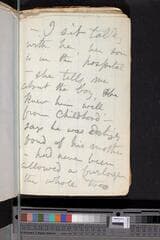 — I sit & talk
with her, her son
is in the hospital
— she tells me
about the boy, she
knew him well
from Childhood —
says he was
fond of his mother
— had never been
allowed a furlough
the whole two